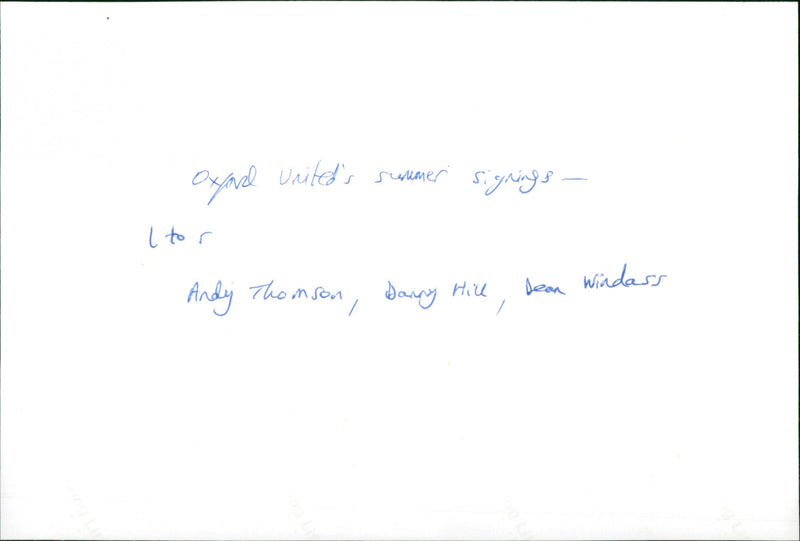 Oxford United's summer signings —
l to r
Andy Thomson, Danny Hill, Dean Windass